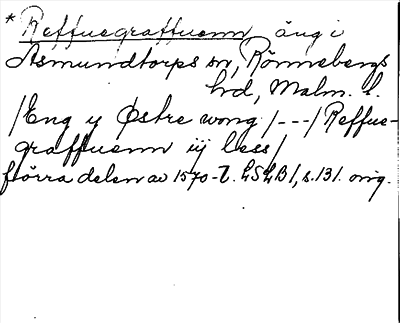 * Reffuegraffuenn äng i
Asmundtorps sn, Rönnebergs
hd, Malm. l.
/Eng y Østre wong/---/Reffue-
graffuenn iij less/
förra delen av 1570-t. LSLB1, s. 131. orig.